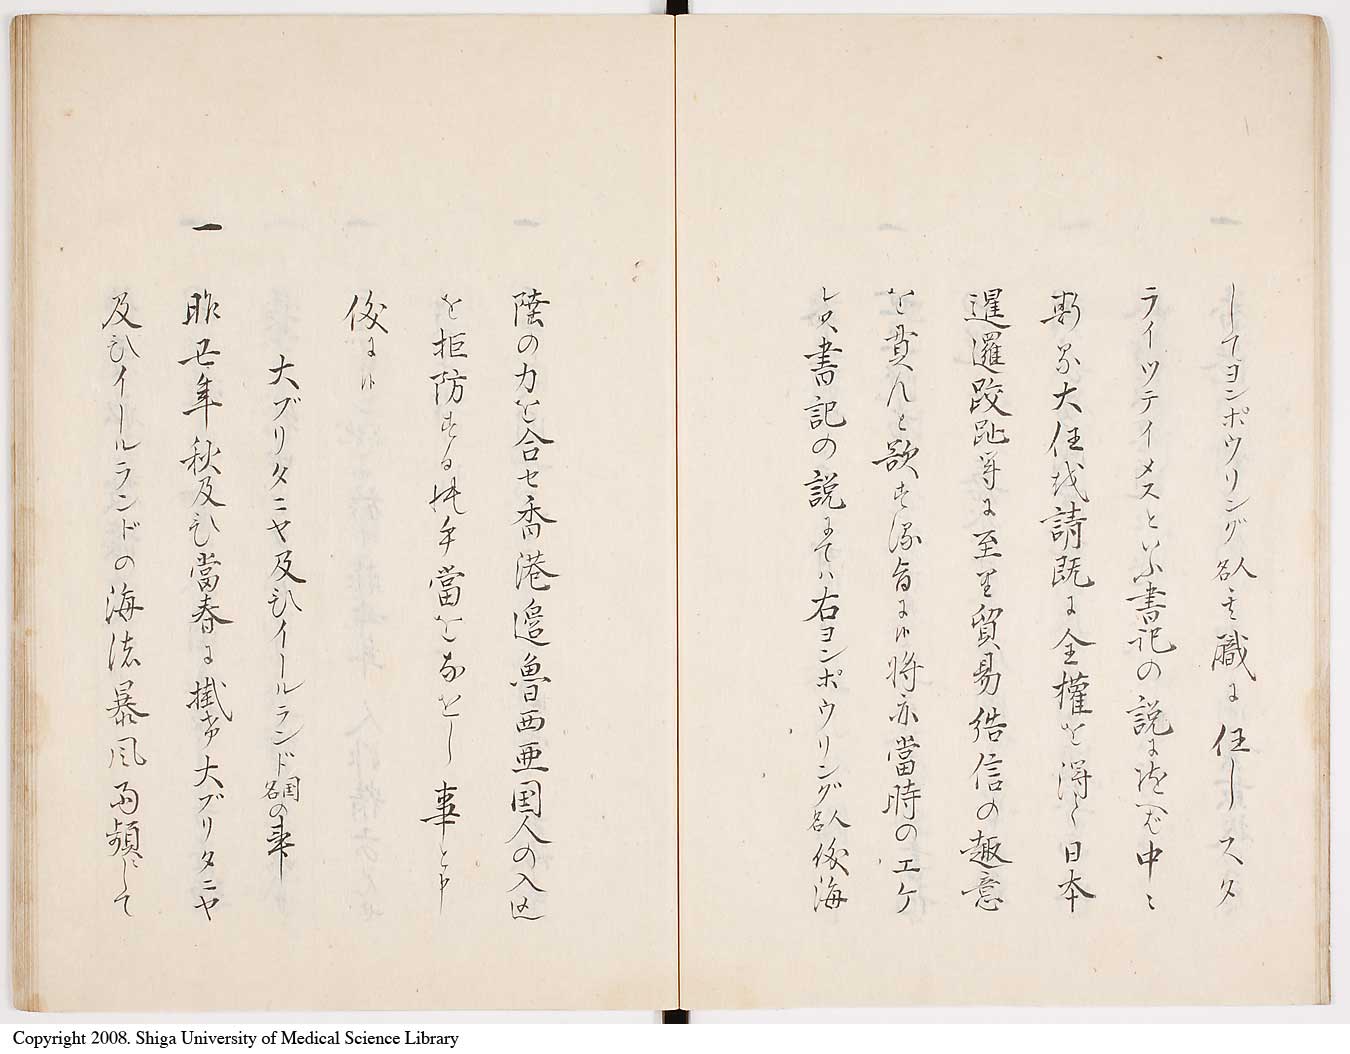 してヨンボウリング人名其職に任しスタ
ライツテイメスといふ書記の説に従へば中々
斯る大任我請既に全権を得く日本
暹邏跤趾等に至り貿易結信の趣意
を貫んと欲する旨に候将亦當時のエケ
レス書記の説にてハ右ヨンボウリング人名儀海
陸の力を合セ香港邉魯西亜国人の入込
を拒防する手當をなせし事と申
儀に候
大ブリタニヤ及ひイールランド国名の事
一 昨丑年秋及ひ當春に掛ケ大ブリタニヤ
及ひイールランドの海濱暴風雨頻にして
Copyright 2008. Shiga University of Medical Science Library